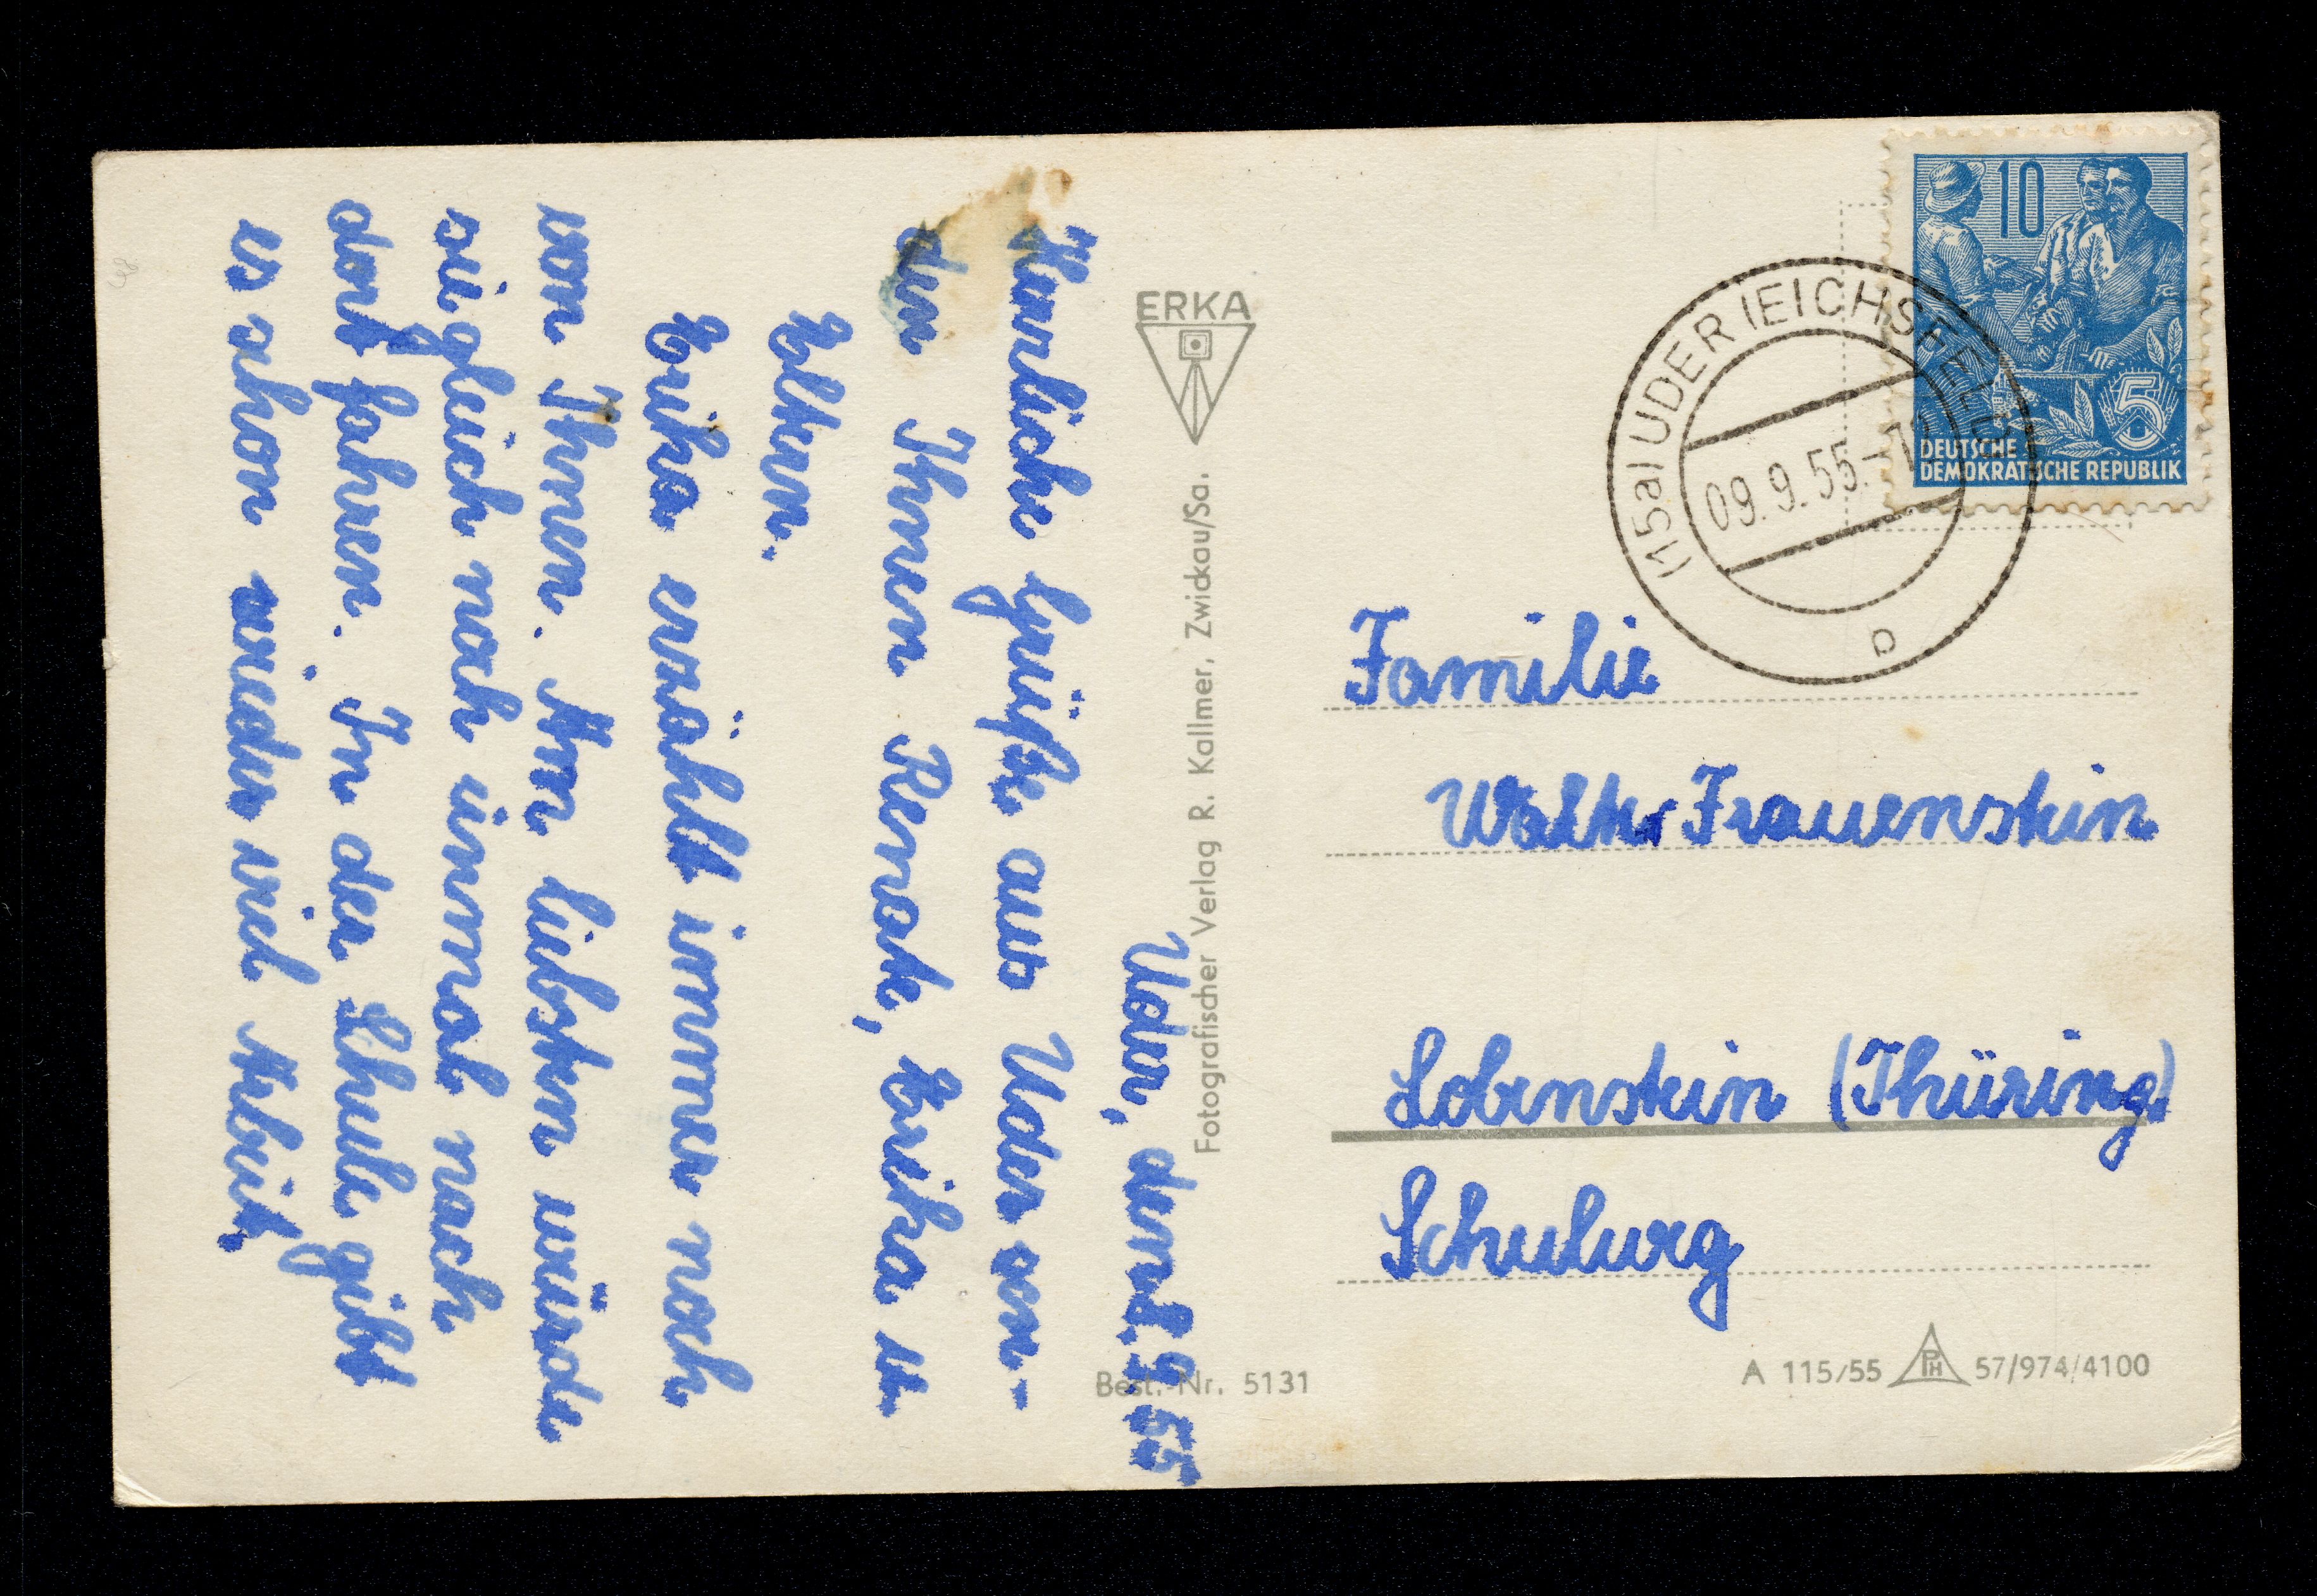 Uder, den 8.9.55
Herzliche Grüße aus Uder sen-
den Ihnen Renate, Erika u.
Eltern.
Erika erzählt immer noch
von Ihnen. Am liebsten würde
sie gleich noch einmal nach
dort fahren. In der Schule gibt
es schon wieder viel Arbeit.
ERKA
Fotografischer Verlag R. Kallmer, Zwickau/Sa.
Best.-Nr. 5131
10
5
DEUTSCHE
DEMOKRATISCHE REPUBLIK
(15a) UDER (EICHSFELD)
09.9.55.-
Familie
Walter Frauenstein
Lobenstein (Thüring.)
Schulweg
A 115/55 PH 57/974/4100